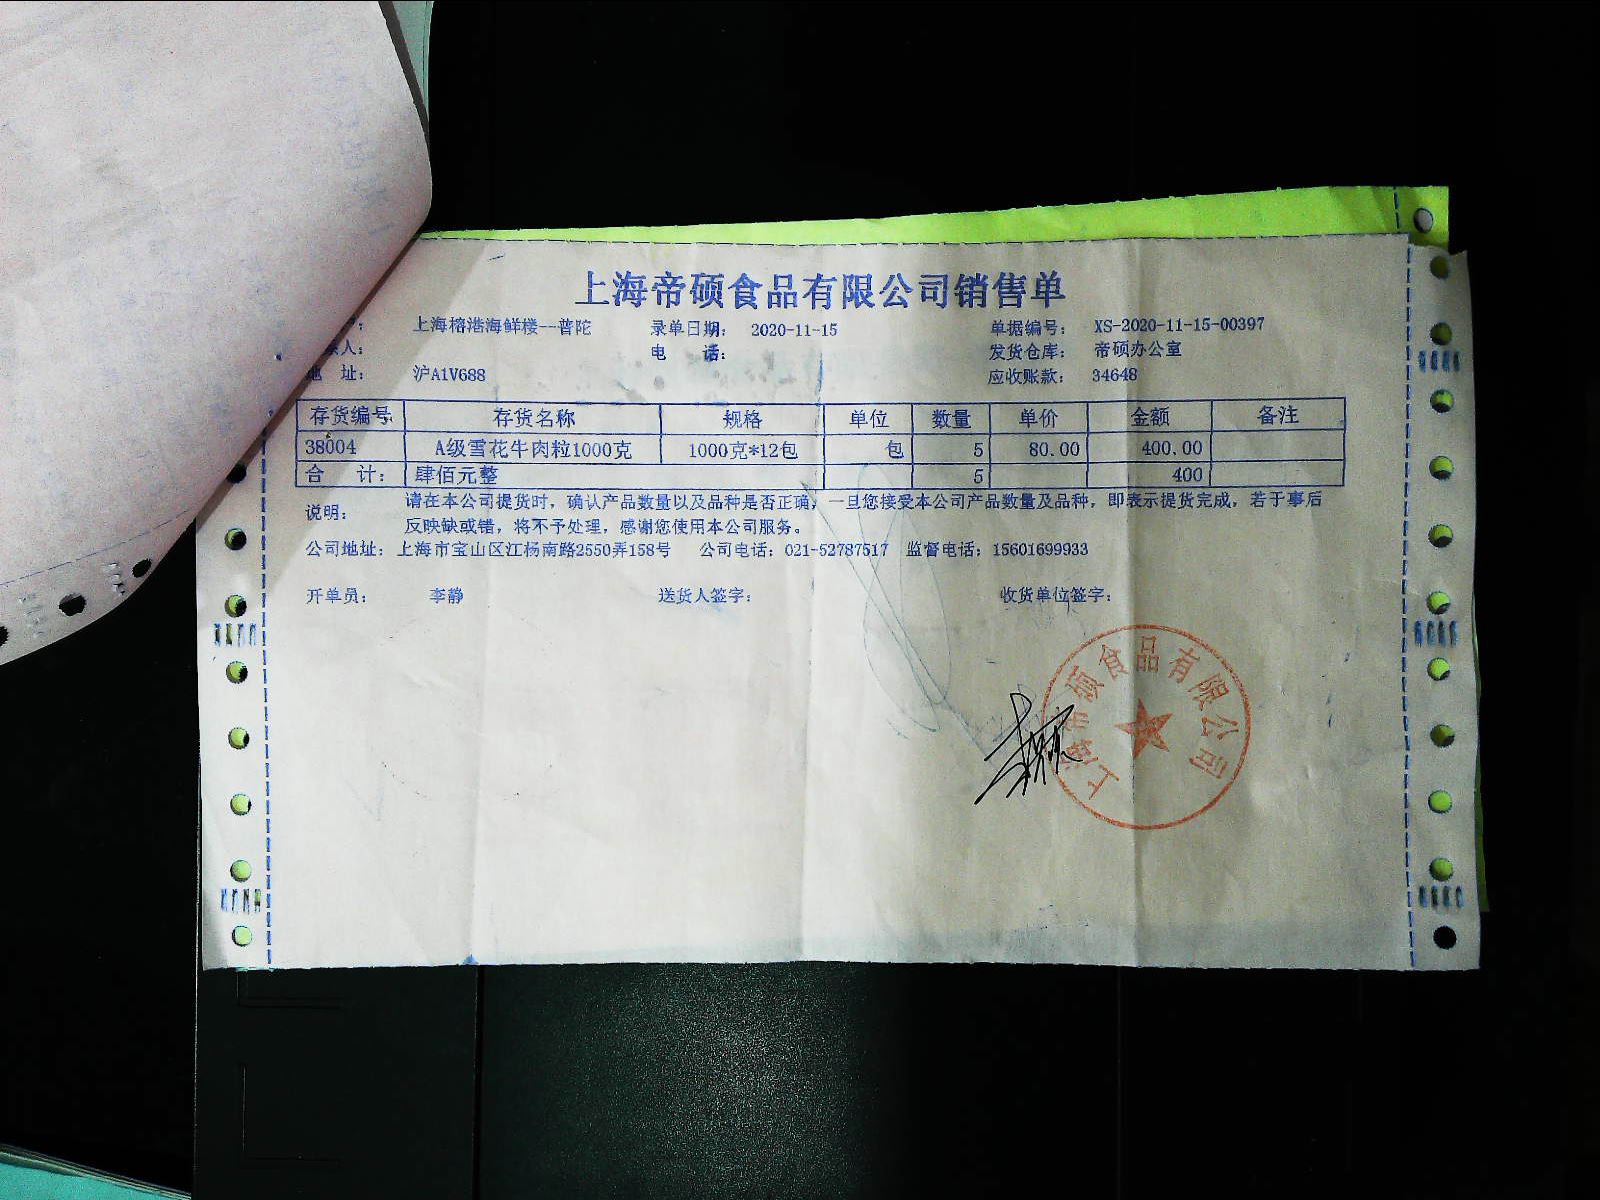 上海帝硕食品有限公司销售单
上海榕港海鲜楼--普陀 录单日期： 2020-11-15 单据编号： XS-2020-11-15-00397
人： 电 话： 发货仓库： 帝硕办公室
地 址： 沪A1V688 应收账款： 34648
存货编号 存货名称 规格 单位 数量 单价 金额 备注
38004 A级雪花牛肉粒1000克 1000克*12包 包 5 80.00 400.00
合 计： 肆佰元整 5 400
说明： 请在本公司提货时，确认产品数量以及品种是否正确，一旦您接受本公司产品数量及品种，即表示提货完成，若于事后
反映缺或错，将不予处理，感谢您使用本公司服务。
公司地址： 上海市宝山区江杨南路2550弄158号 公司电话：021-52787517 监督电话：15601699933
开单员： 李静 送货人签字： 收货单位签字：
上海帝硕食品有限公司